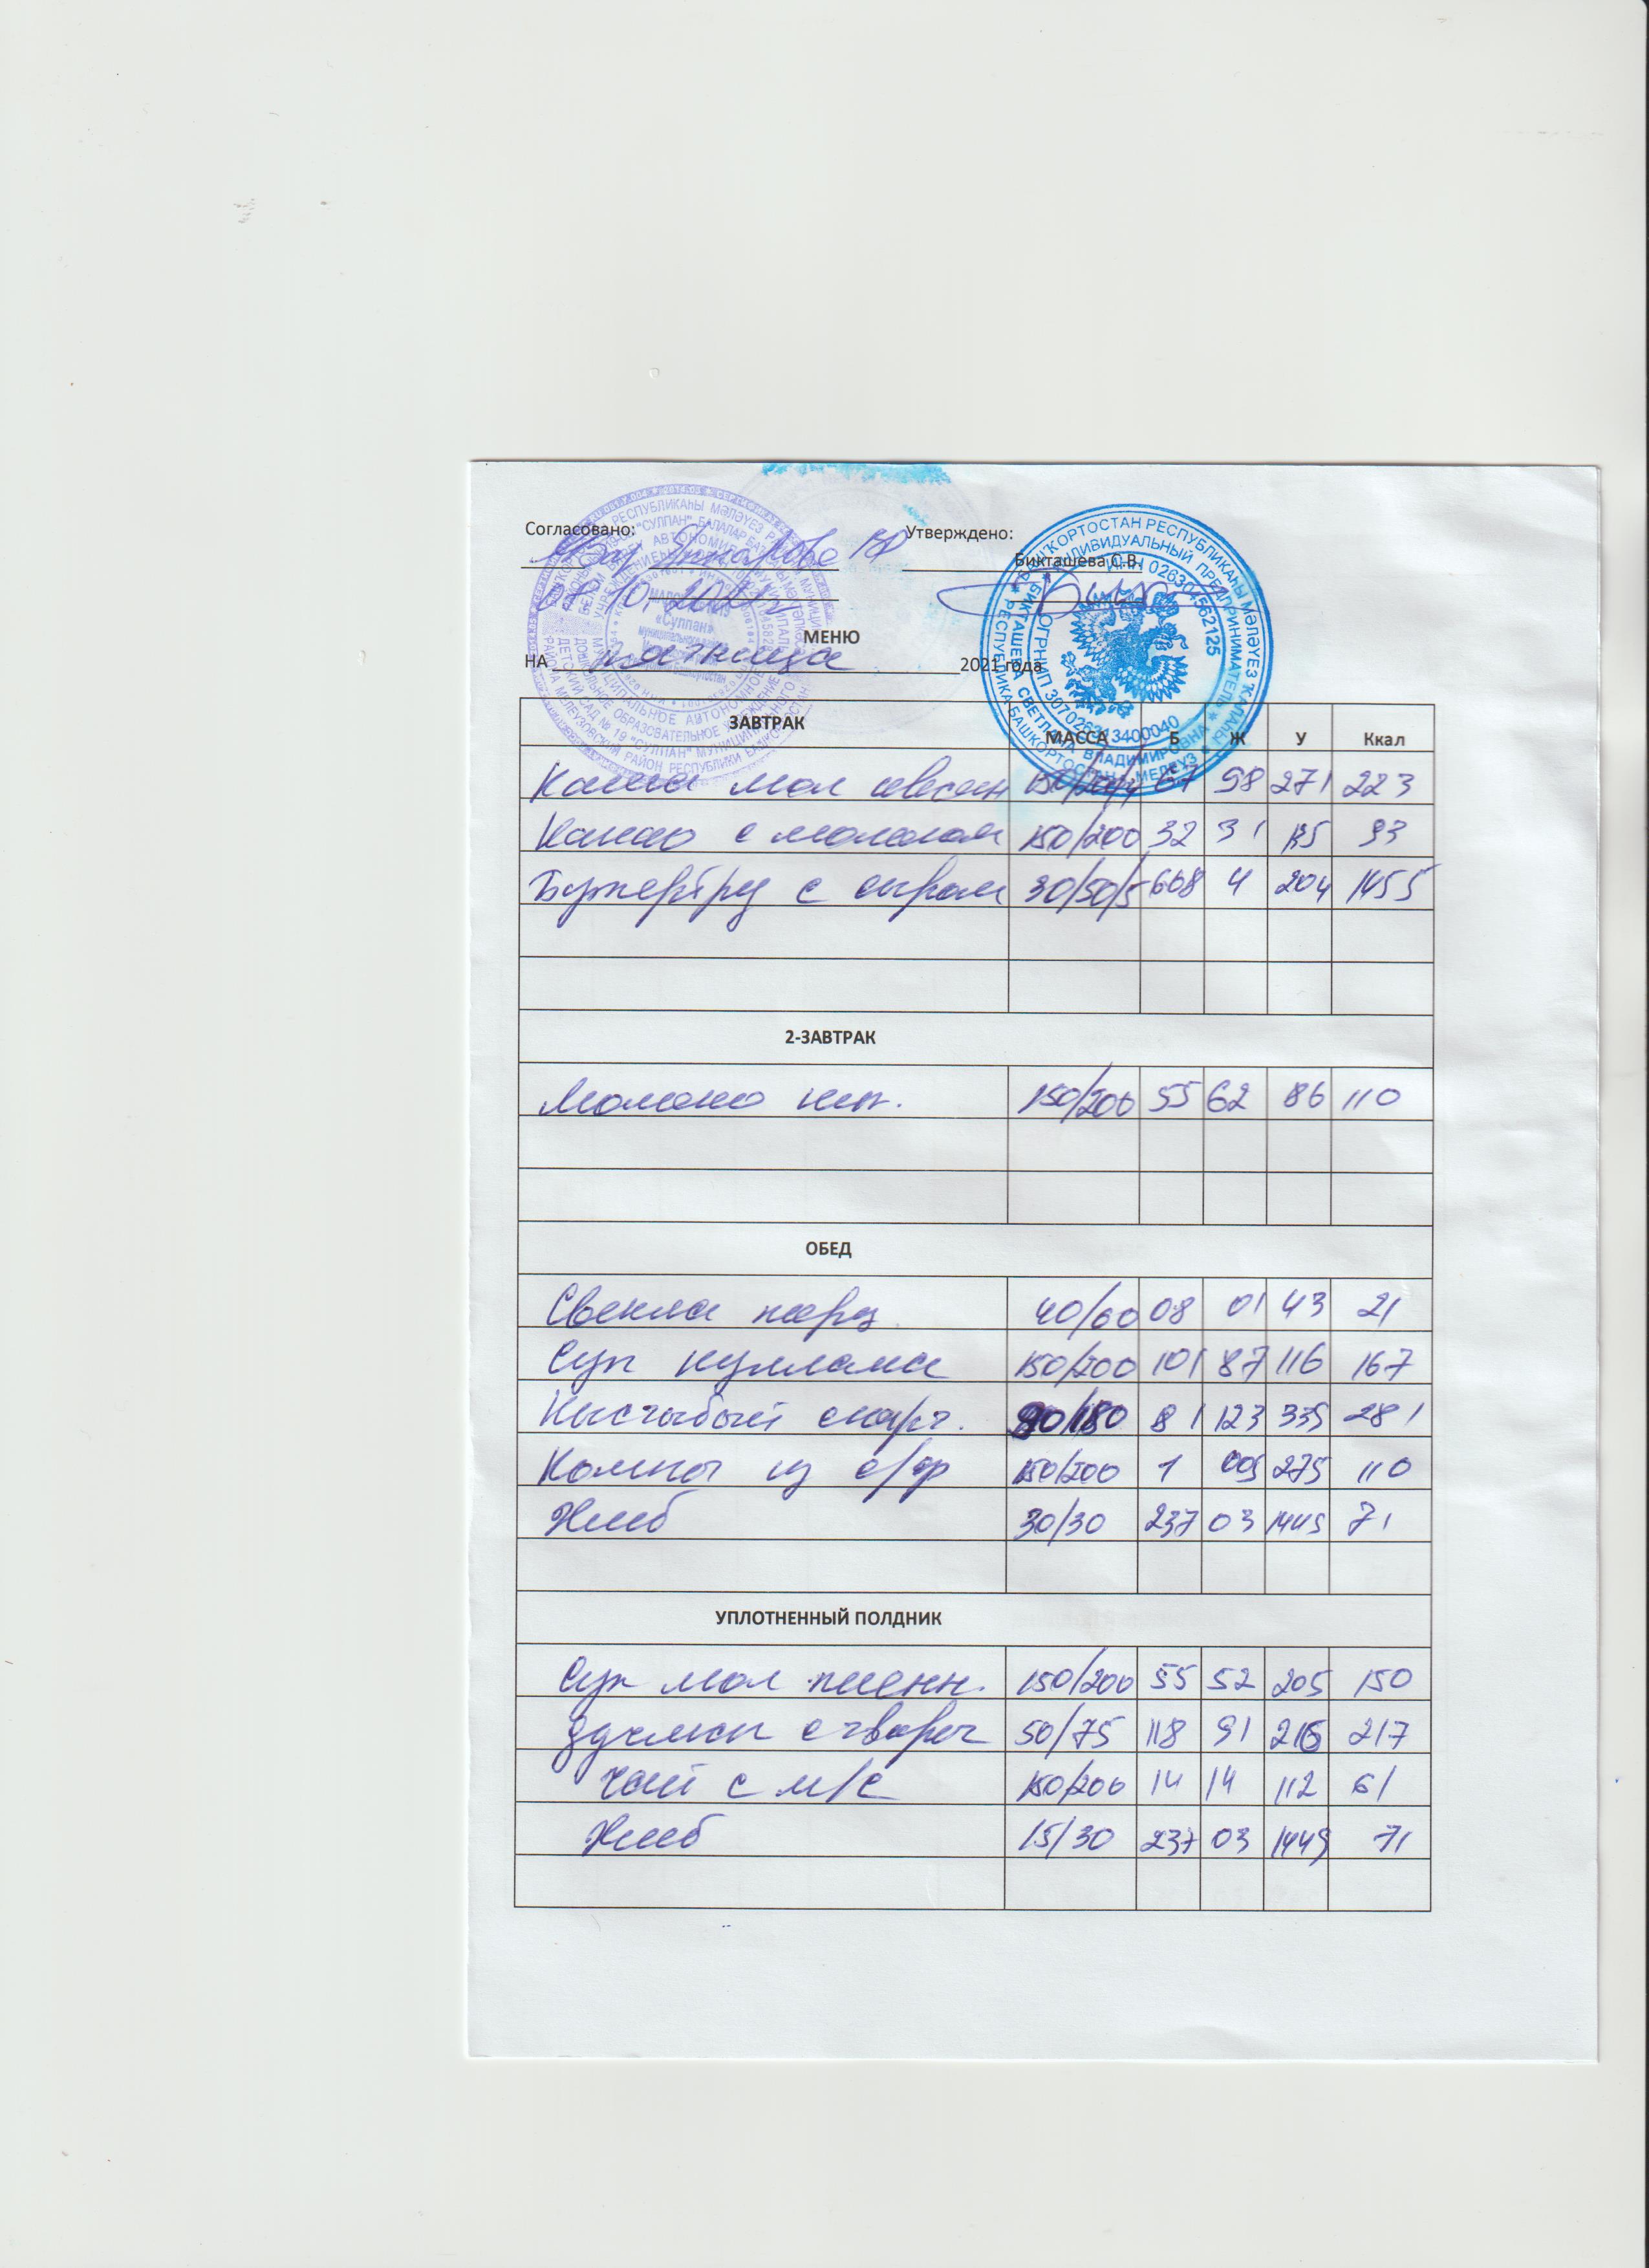 Согласовано: Утверждено:
Бикташева С.В.
10. 2021
МЕНЮ
НА пятница 2021 года
ЗАВТРАК МАССА Б Ж У Ккал
Каша мол овсян 150/204 67 98 271 223
Какао с молоком 150/200 32 31 135 93
Бутерброд с сыром 30/50/5 668 4 204 1455
2-ЗАВТРАК
Молоко кип. 150/200 55 62 86 110
ОБЕД
Свекла порц. 40/60 08 01 43 21
Суп куллама 150/200 101 87 116 167
Кыстыбый с карт. 90/180 81 123 335 281
Компот из с/ф 150/200 1 005 275 110
Хлеб 30/30 237 03 1449 71
УПЛОТНЕННЫЙ ПОЛДНИК
Суп мол пшенн. 150/200 55 52 205 150
с творог 50/75 118 91 216 217
Чай с м/с 150/200 14 14 112 61
Хлеб 15/30 237 03 1449 71
БАШҠОРТОСТАН РЕСПУБЛИКАҺЫ МӘЛӘҮЕЗ ҠАЛАҺЫ
РЕСПУБЛИКА БАШКОРТОСТАН г. МЕЛЕУЗ
ИНДИВИДУАЛЬНЫЙ ПРЕДПРИНИМАТЕЛЬ
БИКТАШЕВА СВЕТЛАНА ВЛАДИМИРОВНА
ИНН 026304562125
ОГРНИП 307026313400040
«Сулпан»